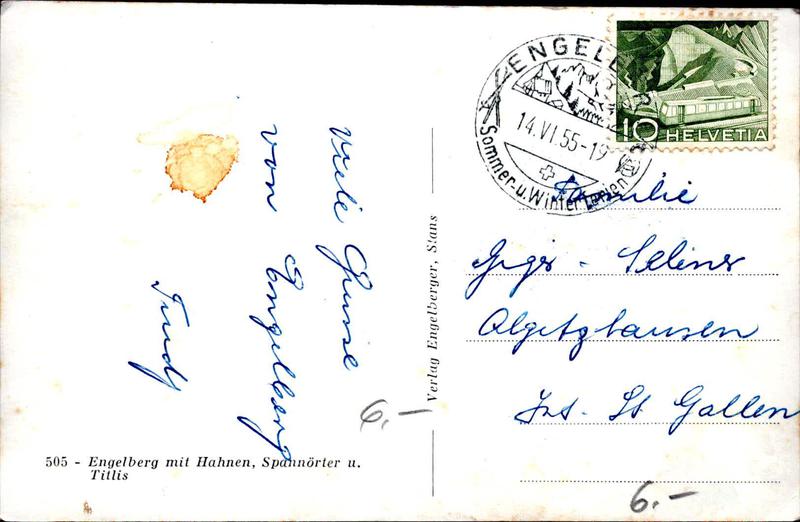 Viele Grüsse
von Engelberg
Trudj
505 - Engelberg mit Hahnen, Spannörter u.
Titlis
Verlag Engelberger, Stans
ENGELBERG
14.VI.55-19
Sommer-u.Winter Ferien
10 HELVETIA
Familie
Giger - Seliner
Algetzhausen
Kt. St Gallen
6.-
6.-